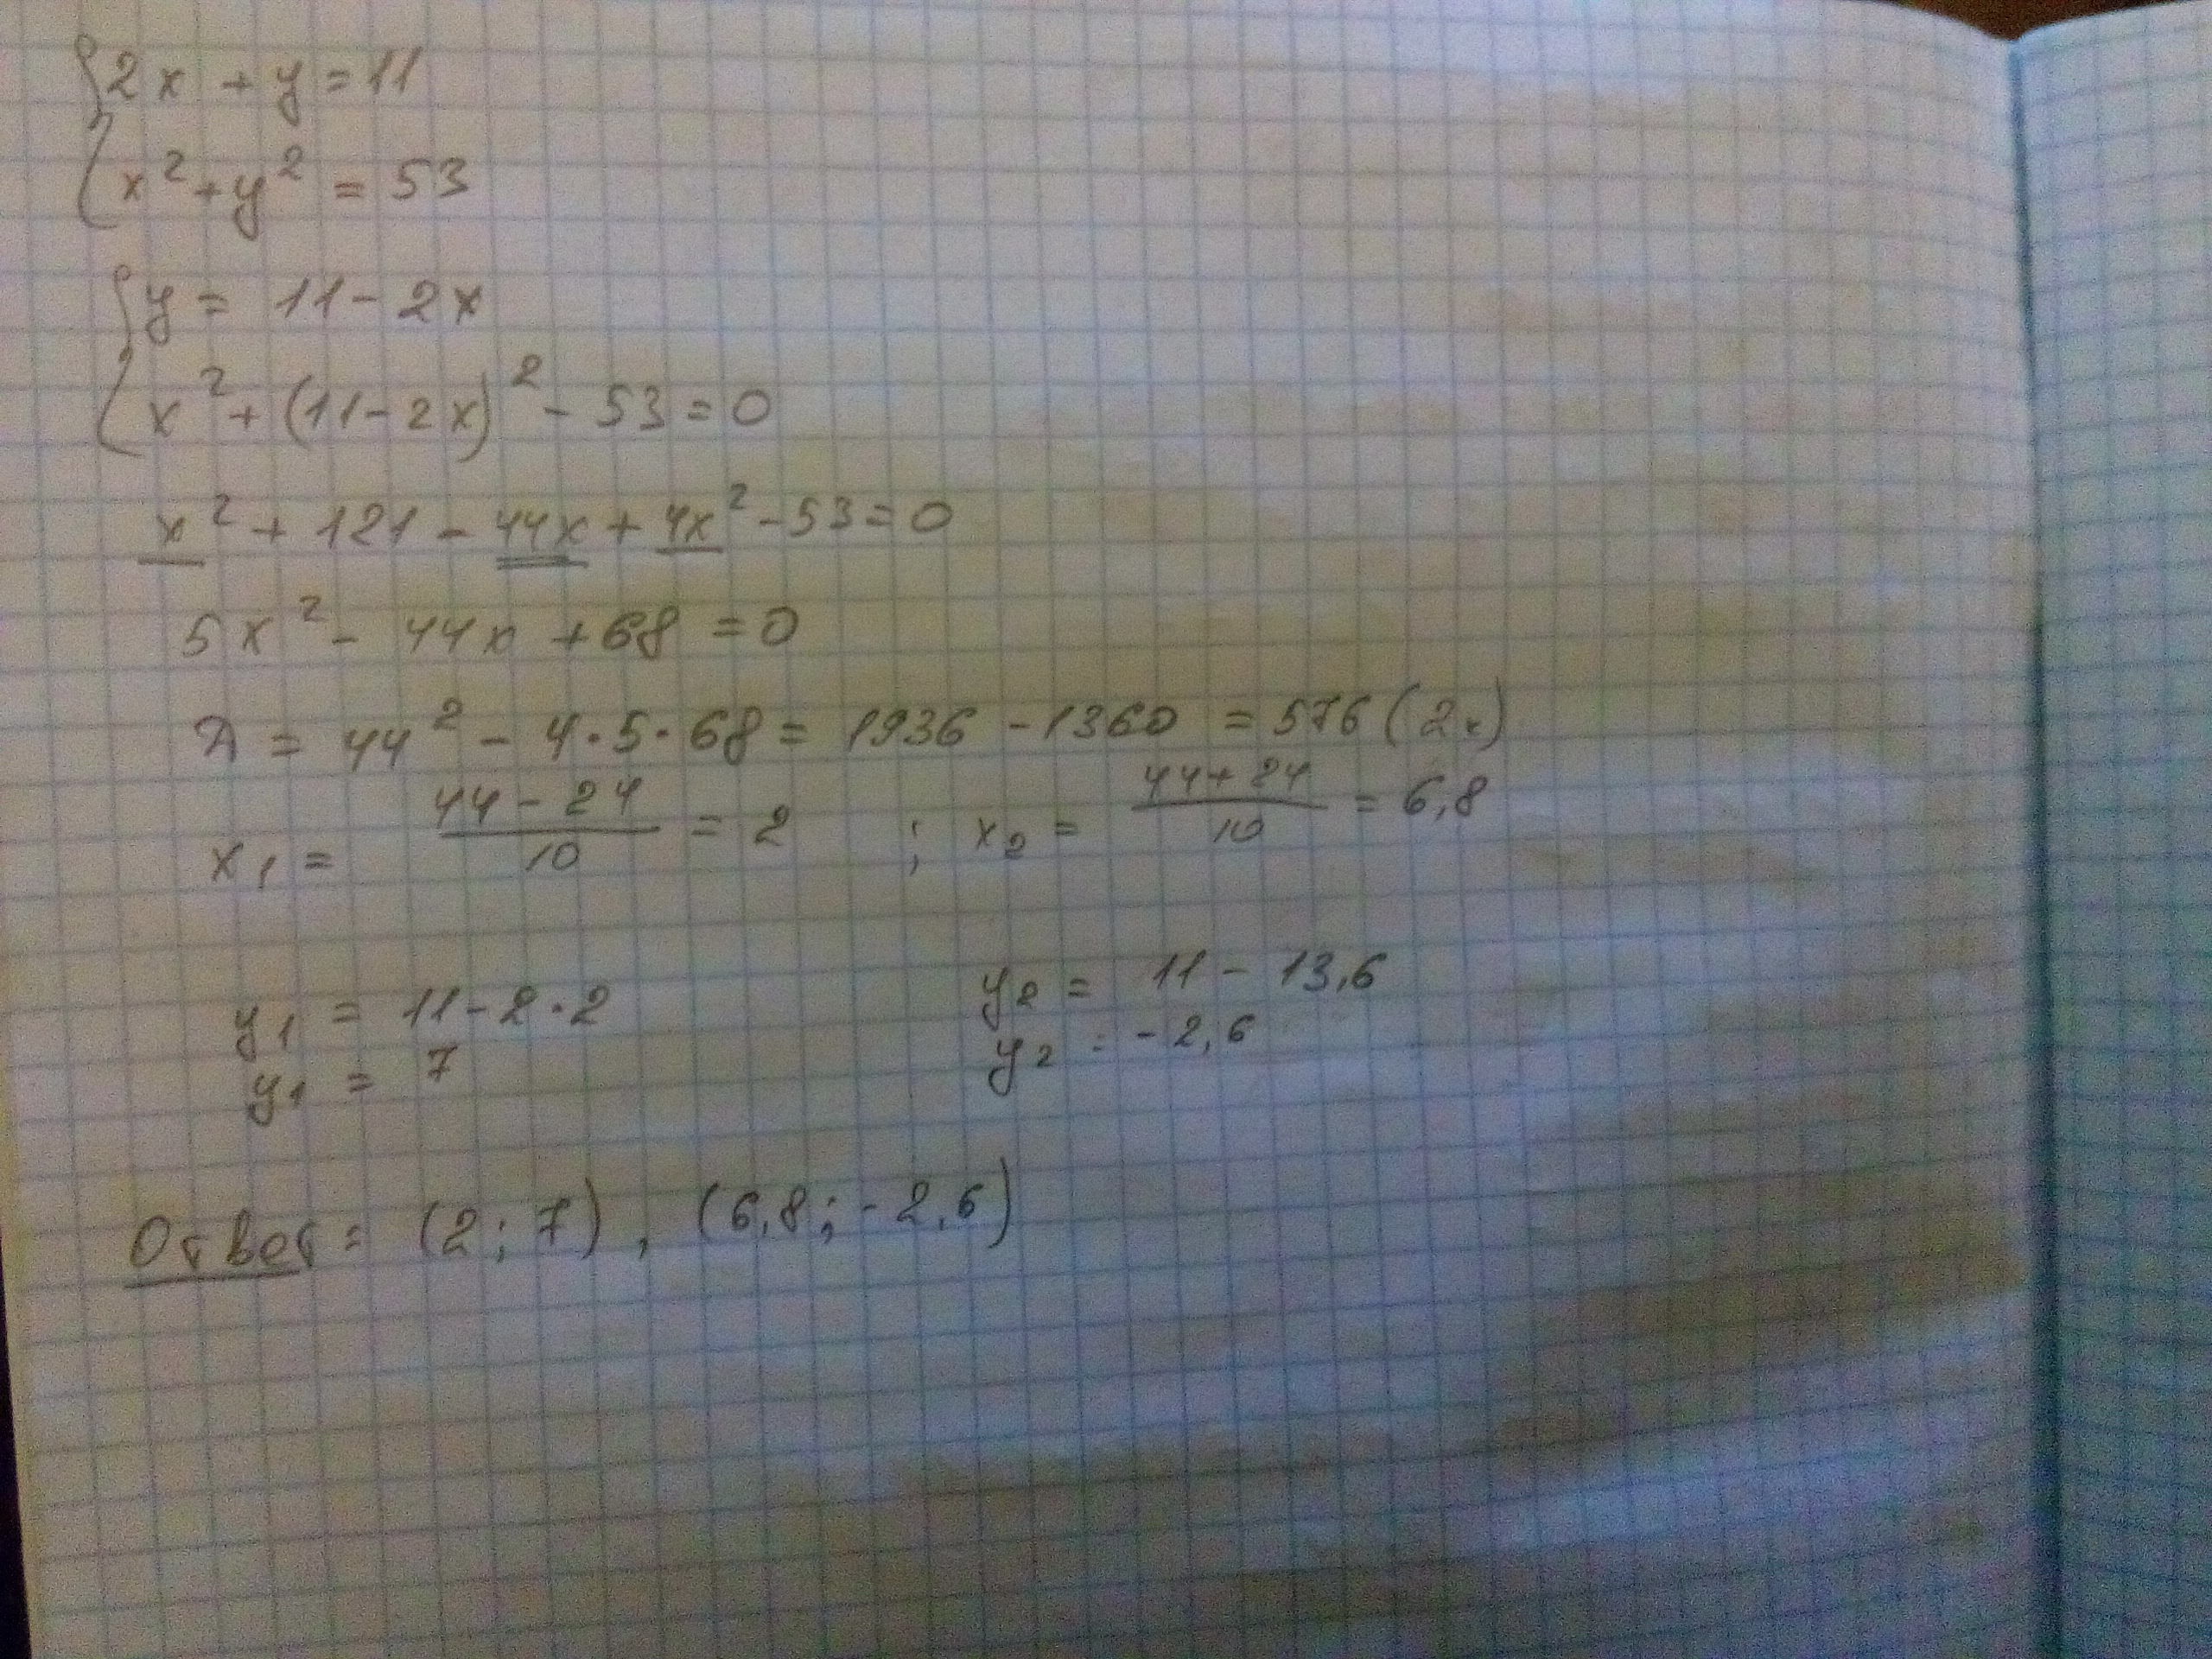 {2x + y = 11
{x² + y² = 53
{y = 11 - 2x
{x² + (11 - 2x)² - 53 = 0
x² + 121 - 44x + 4x² - 53 = 0
5x² - 44x + 68 = 0
Д = 44² - 4·5·68 = 1936 - 1360 = 576 (2к)
x₁ = (44 - 24)/10 = 2 ; x₂ = (44 + 24)/10 = 6,8
y₁ = 11 - 2·2 y₂ = 11 - 13,6
y₁ = 7 y₂ = -2,6
Ответ: (2; 7), (6,8; -2,6)